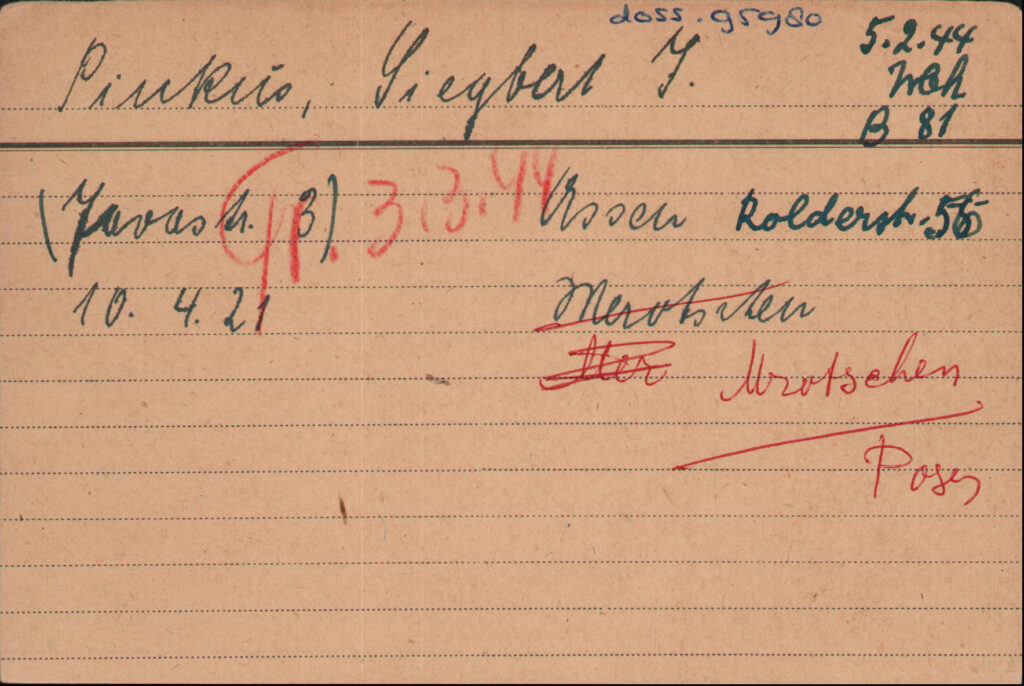 doss. 95980
Pinkus, Siegbert J.
5.2.44
Wbh
B 81
(Javastr. 3) Assen Rolderstr. 56
Gr. 3.3.44
10. 4. 21
Merotschen
Mer Mrotschen
Posen